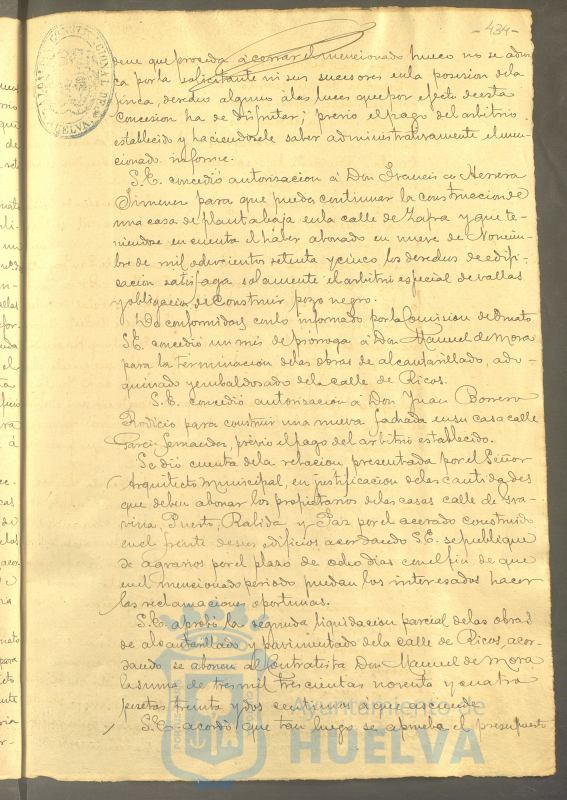 -434-
dene que proceda á cerrar el mencionado hueco no se aduz
ca por la solicitante ni sus sucesores en la posesion de la
finca, derecho alguno á las luces que por efecto de esta
concesion ha de disfrutar; previo el pago del arbitrio
establecido y haciendosele saber administrativamente el men-
cionado informe.
S.E. concedió autorizacion á Don Francisco Herrera
Jimenez para que pueda continuar la construccion de
una casa de planta baja en la calle de Zafra y que te-
niendose en cuenta el haber abonado en nueve de Noviem-
bre de mil ochocientos setenta y cinco los derechos de edifi-
cacion satisfaga solamente el arbitrio especial de vallas
y obligacion de construir pozo negro.
De conformidad con lo informado por la Comision de Ornato
S.E. concedió un mes de prorroga á Don Manuel de Mora
para la terminacion de las obras de alcantarillado, ado-
quinado y embaldosado de la calle de Ricos.
S.E. concedió autorizacion á Don Juan Borrero
Rodicio para construir una nueva fachada en su casa calle
Garci-Fernandez, previo el pago del arbitrio establecido.
Se dió cuenta de la relacion presentada por el Señor
Arquitecto municipal, en justificacion de las cantidades
que deben abonar los propietarios de las casas calle de Gra-
vina Puerto, Rabida y Paz por el acerado construido
en el frente de sus edificios acordando S.E. se publique
de agravios por el plazo de ocho dias con el fin de que
en el mencionado periodo puedan los interesados hacer
las reclamaciones oportunas.
S.E. aprobó la segunda liquidacion parcial de las obras
de alcantarillado y pavimentado de la calle de Ricos, acor-
dando se abonen al Contratista Don Manuel de Mora
la suma de tres mil trescientas noventa y cuatro
pesetas treinta y dos centimos á que asciende.
S.E. acordó que tan luego se apruebe el presupuesto
Ayuntamiento de
HUELVA